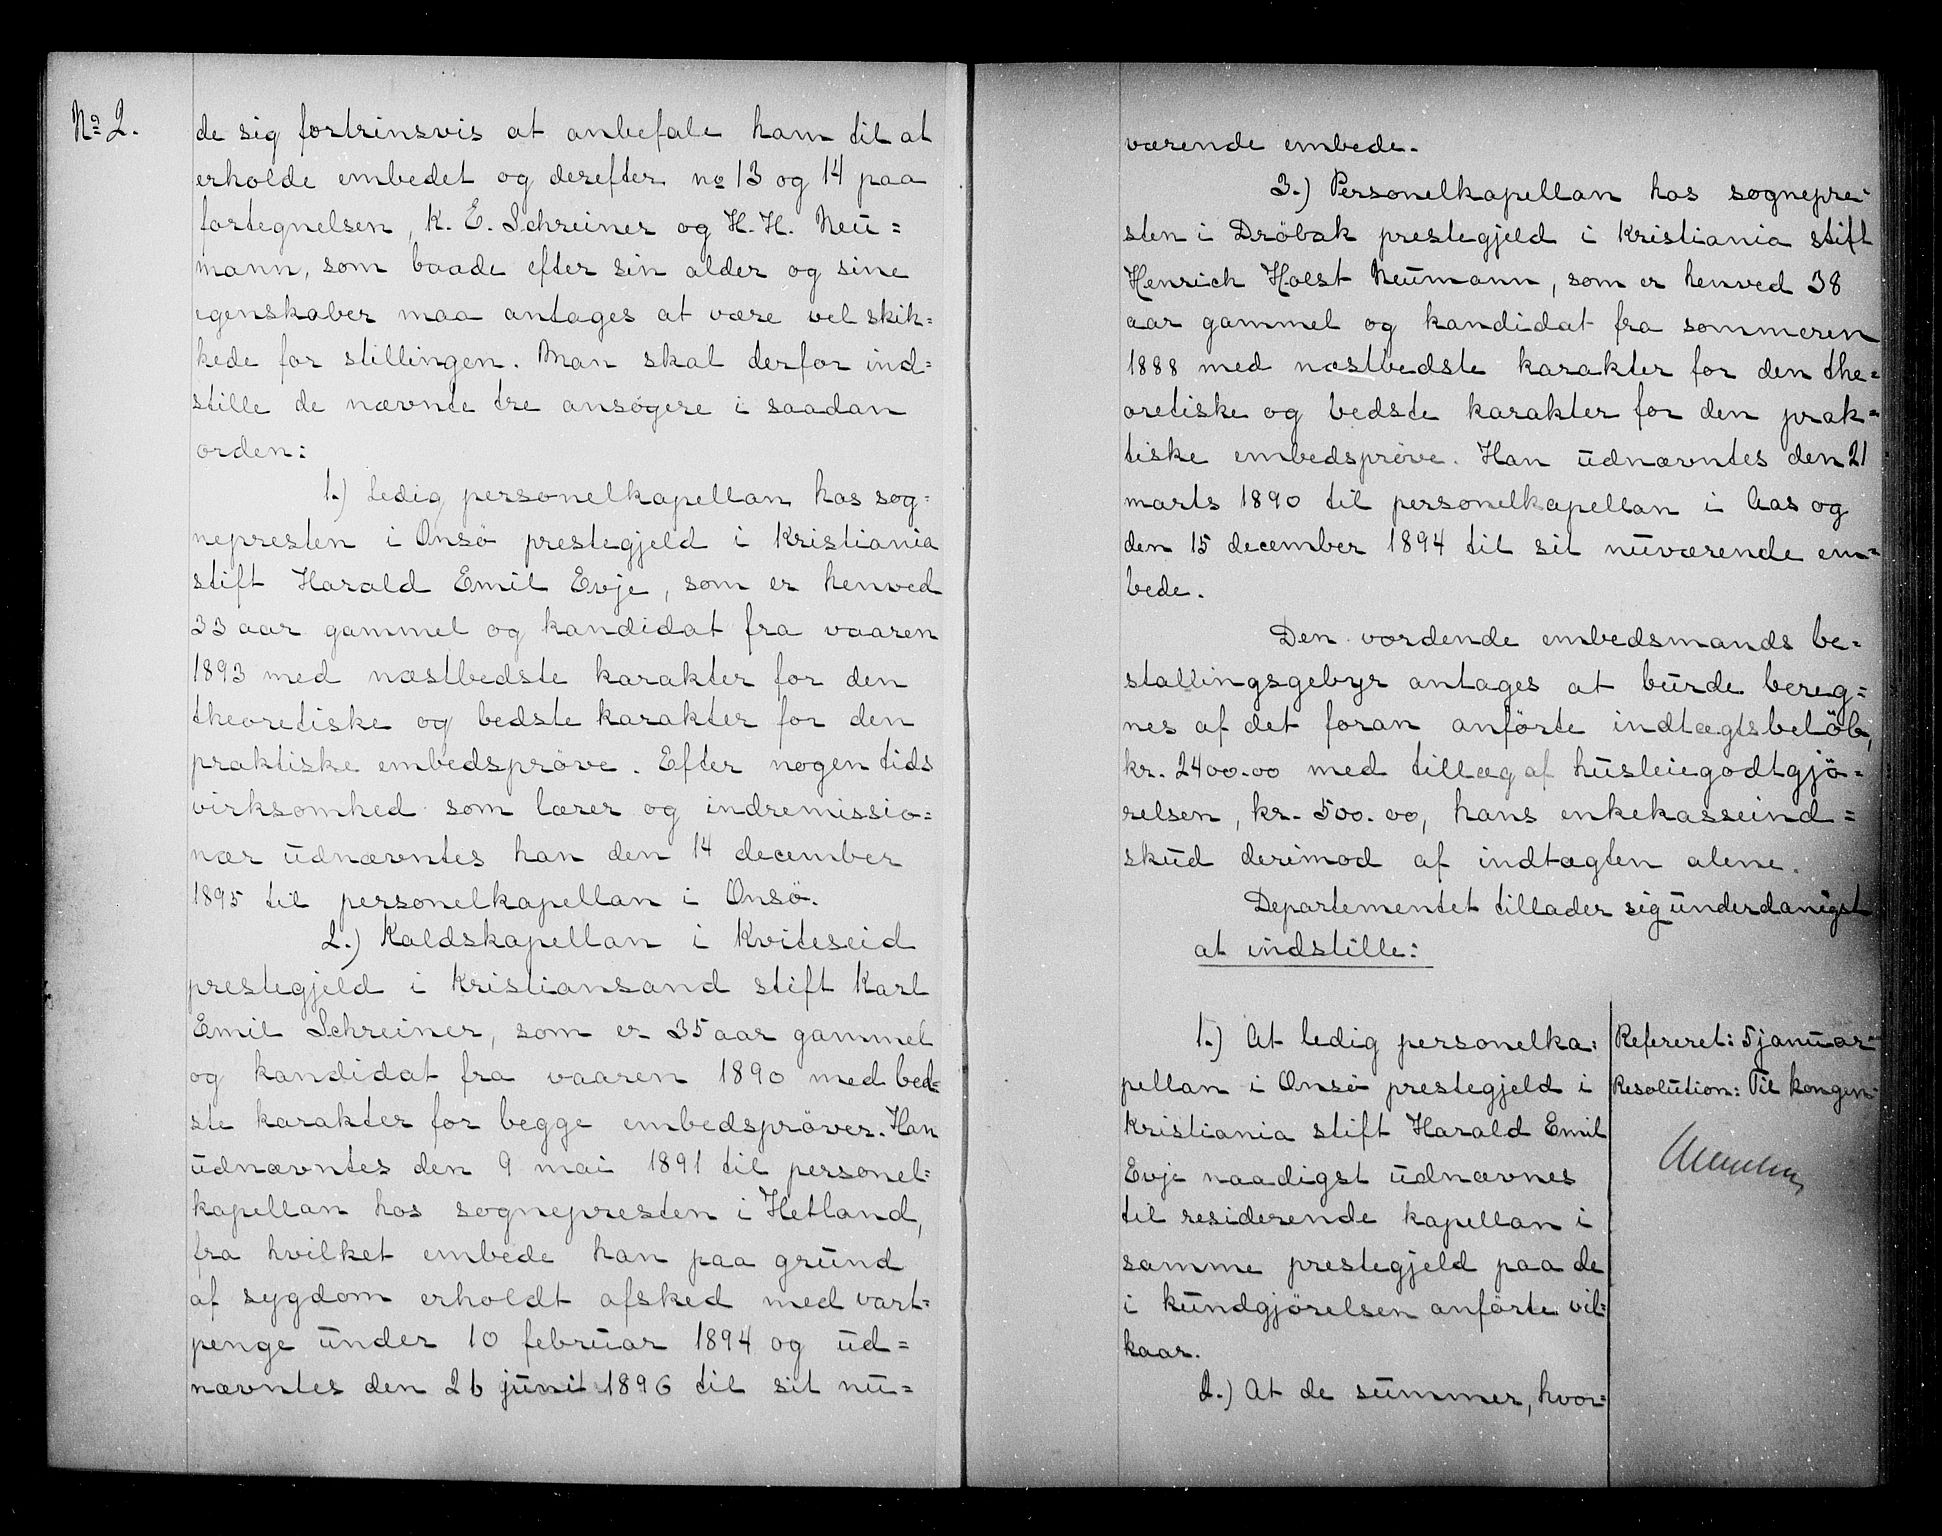 No 2.
de sig fortrinsvis at anbefale ham til at
erholde embedet og derefter no 13 og 14 paa
fortegnelsen, K. E. Schreiner og H. H. Neu=
mann, som baade efter sin alder og sine
egenskaber maa antages at være vel skik=
kede for stillingen. Man skal derfor ind=
stille de nævnte tre ansøgere i saadan
orden:
1.) Ledig personelkapellan hos sog=
nepresten i Onsö prestegjeld i Kristiania
stift Harald Emil Evje, som er henved
33 aar gammel og kandidat fra vaaren
1893 med næstbedste karakter for den
theoretiske og bedste karakter for den
praktiske embedspröve. Efter nogen tids
virksomhed som lærer og indremissio=
nær udnævntes han den 14 december
1895 til personelkapellan i Onsö.
2.) Kaldskapellan i Kviteseid
prestegjeld i Kristiansand stift Karl
Emil Schreiner, som er 35 aar gammel
og kandidat fra vaaren 1890 med bed=
ste karakter for begge embedspröver. Han
udnævntes den 9 mai 1891 til personel=
kapellan hos sognepresten i Hetland,
fra hvilket embede han paa grund
af sygdom erholdt afsked med vart=
penge under 10 februar 1894 og ud=
nævntes den 26 juni 1896 til sit nu=
værende embede.
3.) Personelkapellan hos sognepre=
sten i Dröbak prestegjeld i Kristiania stift
Henrich Holst Neumann, som er henved 38
aar gammel og kandidat fra sommeren
1888 med næstbedste karakter for den the=
oretiske og bedste karakter for den prak=
tiske embedspröve. Han udnævntes den 21
marts 1890 til personelkapellan i Aas og
den 15 december 1894 til sit nuværende em=
bede.
Den vordende embedsmands be=
stallingsgebyr antages at burde bereg=
nes af det foran anförte indtægtsbelöb,
kr. 2400.00 med tillæg af husleiegodtgjö=
relsen, kr. 500.00, hans enkekasseind=
skud derimod af indtægten alene.
Departementet tillader sig underdanigst
at indstille:
1.) At ledig personelka=
pellan i Onsö prestegjeld i
Kristiania stift Harald Emil
Evje naadigst udnævnes
til residerende kapellan i
samme prestegjeld paa de
i kundgjörelsen anförte vil=
kaar.
2.) At de summer, hvor=
Refereret: 5 januar
Resolution: Til kongen.